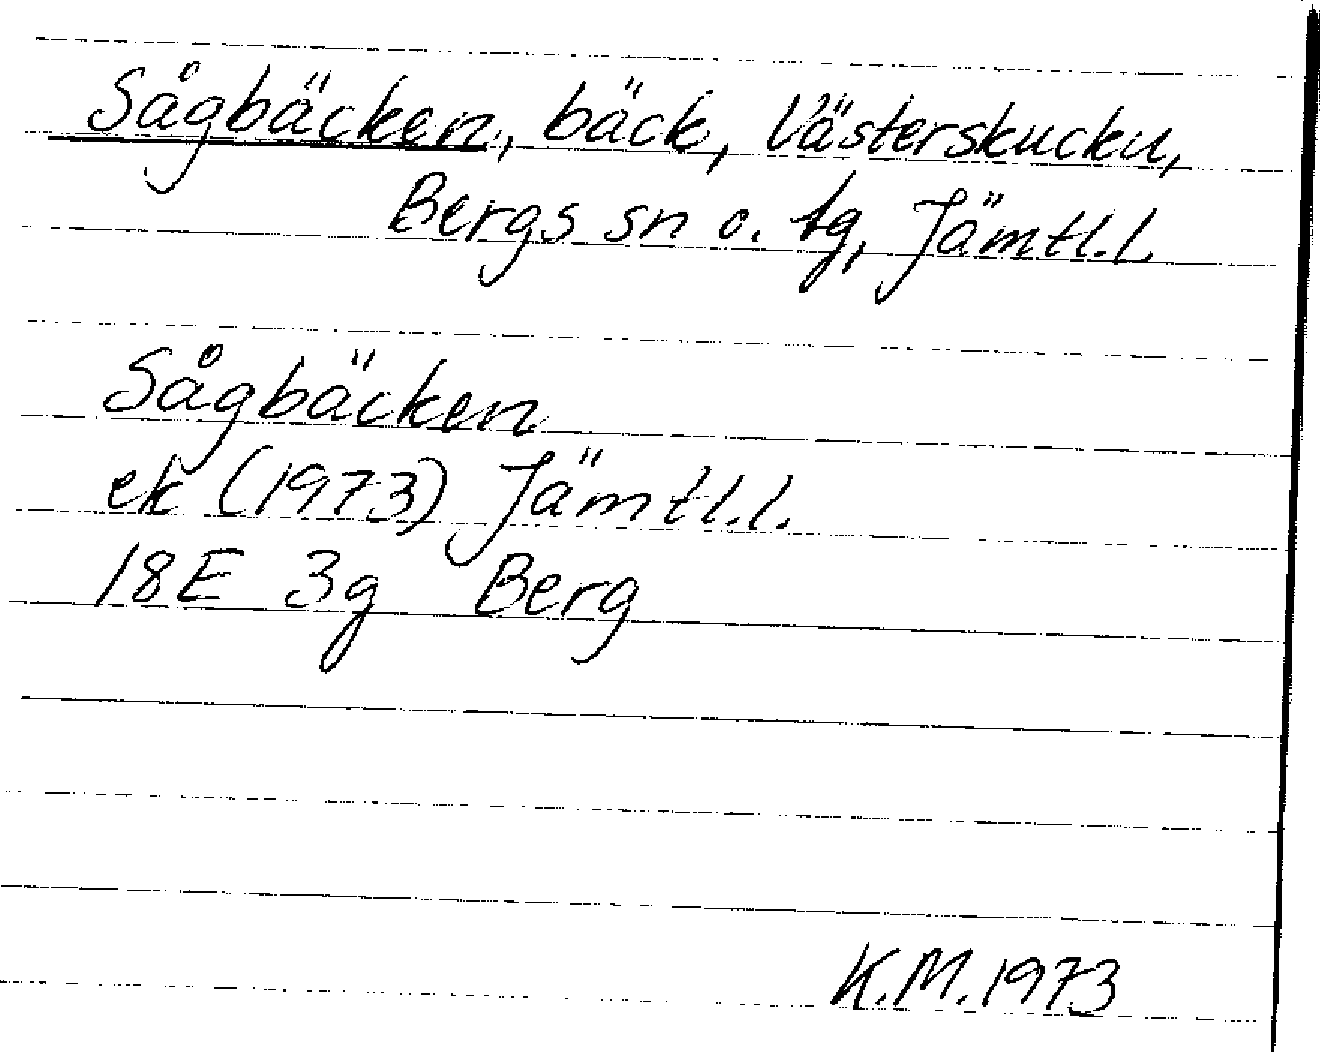 Sågbäcken, bäck, Västerskucku,
Bergs sn o. tg, Jämtl.l.
Sågbäcken
ek (1973) Jämtl.l.
18E 3g Berg
K.M.1973